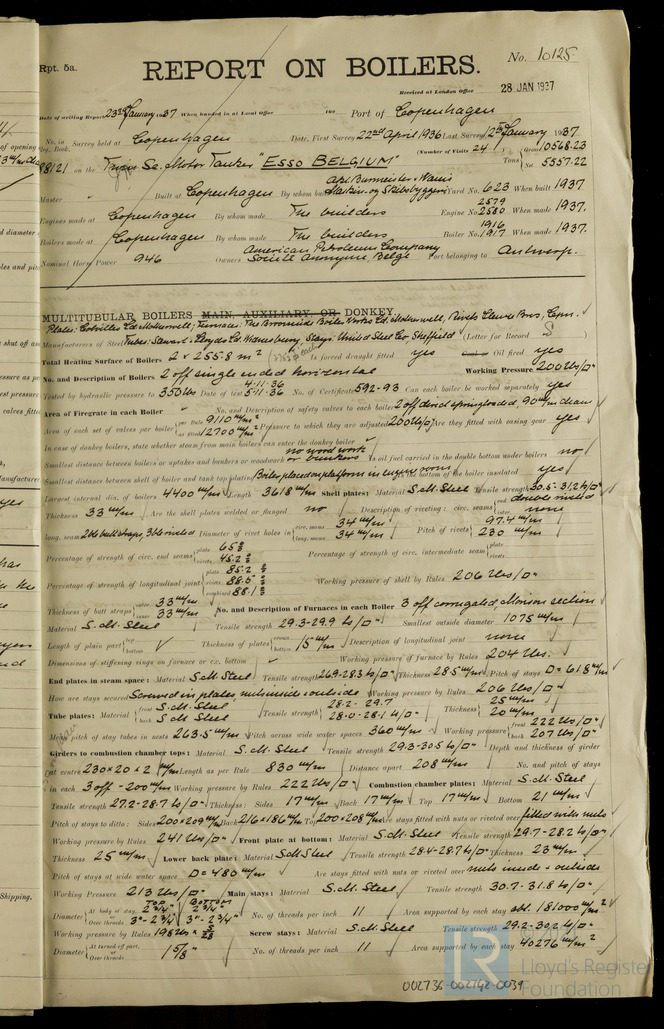 Rpt. 5a.
No. 10125
REPORT ON BOILERS.
Received at London Office 28 JAN 1937
Date of writing Report 23rd January 1937 When handed in at Local Office 193 Port of Copenhagen
No. in Reg. Book. Survey held at Copenhagen Date, First Survey 22nd April 1936 Last Survey January 1937
(Number of Visits 24) Gross 10568.23
88121 on the Sc. Motor Tanker "ESSO BELGIUM" Tons Net 5557.22
Master Built at Copenhagen By whom built Akt. Burmeister & Wain's Maskin- og Skibsbyggeri Yard No. 623 When built 1937
Engines made at Copenhagen By whom made The builders Engine No. 2579 2580 When made 1937.
Boilers made at Copenhagen By whom made The builders Boiler No. 1916 1917 When made 1937.
Nominal Horse Power 946 Owners American Petroleum Company Société Anonyme Belge Port belonging to Antwerp.
MULTITUBULAR BOILERS MAIN, AUXILIARY, OR DONKEY.
Manufacturers of Steel Plates: Colvilles Ld. Motherwell; Furnaces: The Broomside Boiler Works Ld. Motherwell, Tubes: Stewart & Lloyds Ld. Stays: United Steel Co. Sheffield (Letter for Record S)
Total Heating Surface of Boilers 2 x 255.8 m² Is forced draught fitted yes Coal or Oil fired yes
No. and Description of Boilers 2 off single ended horizontal Working Pressure 200 lbs/□"
Tested by hydraulic pressure to 350 lbs Date of test 4.11.36 5.11.36 No. of Certificate 592-93 Can each boiler be worked separately yes
Area of Firegrate in each Boiler No. and Description of safety valves to each boiler 2 off direct springloaded, 90 m/m diam
Area of each set of valves per boiler per Rule 9110 m/m² as fitted 12700 m/m² Pressure to which they are adjusted 200 lb/□" Are they fitted with easing gear yes
In case of donkey boilers, state whether steam from main boilers can enter the donkey boiler
Smallest distance between boilers or uptakes and bunkers or woodwork no wood work or bunkers Is oil fuel carried in the double bottom under boilers no
Smallest distance between shell of boiler and tank top plating Boiler placed on platform in engine room Is the bottom of the boiler insulated yes
Largest internal dia. of boilers 4400 m/m Length 3618 m/m Shell plates: Material S.M. Steel Tensile strength 30.5-31.2 lb/□"
Thickness 33 m/m Are the shell plates welded or flanged no Description of riveting: circ. seams end double riveted inter. none
long. seams 2 bble butt straps, 3 ble riveted Diameter of rivet holes in circ. seams 34 m/m long. seams 34 m/m Pitch of rivets 97.4 m/m 230 m/m
Percentage of strength of circ. end seams plate 65% rivets 45.2% Percentage of strength of circ. intermediate seam plate rivets
Percentage of strength of longitudinal joint plate 85.2% rivets 88.5% combined 88.1% Working pressure of shell by Rules 206 lbs/□"
Thickness of butt straps outer 33 m/m inner 33 m/m No. and Description of Furnaces in each Boiler 3 off corrugated, Morison section
Material S.M. Steel Tensile strength 29.3-29.9 lb/□" Smallest outside diameter 1075 m/m
Length of plain part top bottom Thickness of plates crown bottom 15 m/m Description of longitudinal joint none
Dimensions of stiffening rings on furnace or c.c. bottom Working pressure of furnace by Rules 204 lbs.
End plates in steam space: Material S.M. Steel Tensile strength 26.9-28.3 lb/□" Thickness 28.5 m/m Pitch of stays D = 618 m/m
How are stays secured Screwed in plates nuts inside & outside Working pressure by Rules 206 lbs/□"
Tube plates: Material front S.M. Steel back S.M. Steel Tensile strength 28.2-29.7 28.0-28.1 lb/□" Thickness 25 m/m 20 m/m
Mean pitch of stay tubes in nests 263.5 m/m Pitch across wide water spaces 360 m/m Working pressure front 222 lbs/□" back 207 lbs/□"
Girders to combustion chamber tops: Material S.M. Steel Tensile strength 29.3-30.5 lb/□" Depth and thickness of girder
at centre 230 x 20 x 2 m/m Length as per Rule 830 m/m Distance apart 208 m/m No. and pitch of stays
in each 3 off - 200 m/m Working pressure by Rules 222 lbs/□" Combustion chamber plates: Material S.M. Steel
Tensile strength 27.2-28.7 lb/□" Thickness: Sides 17 m/m Back 17 m/m Top 17 m/m Bottom 21 m/m
Pitch of stays to ditto: Sides 200 x 209 m/m Back 216 x 186 m/m Top 200 x 208 m/m Are stays fitted with nuts or riveted over fitted with nuts
Working pressure by Rules 241 lbs/□" Front plate at bottom: Material S.M. Steel Tensile strength 29.7-28.2 lb/□"
Thickness 25 m/m Lower back plate: Material S.M. Steel Tensile strength 28.4-28.7 lb/□" Thickness 23 m/m
Pitch of stays at wide water space D = 480 m/m Are stays fitted with nuts or riveted over nuts inside & outside
Working Pressure 213 lbs/□" Main stays: Material S.M. Steel Tensile strength 30.7-31.8 lb/□"
Diameter At body of stay, Top 2 3/4" Bottom 2 3/4" Over threads 3"-2 3/4" 3"-2 3/4" No. of threads per inch 11 Area supported by each stay abt. 181000 m/m²
Working pressure by Rules 198 lbs Screw stays: Material S.M. Steel Tensile strength 29.2-30.2 lb/□"
Diameter At turned off part, Over threads 1 5/8" No. of threads per inch 11 Area supported by each stay 40276 m/m²
LR Lloyd's Register Foundation
002736-002742-0039